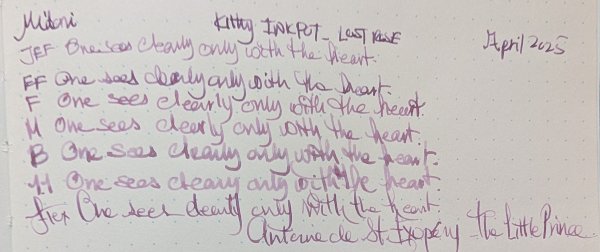 Mitoni Kitty INKPOT_ LOST ROSE April 2025
JEF One sees clearly only with the heart.
EF One sees clearly only with the heart.
F One sees clearly only with the heart.
M One sees clearly only with the heart.
B One sees clearly only with the heart.
1.1 One sees cleary only with the heart.
flex One sees clearly only with the heart.
Antoine de St. Exopéry The Little Prince